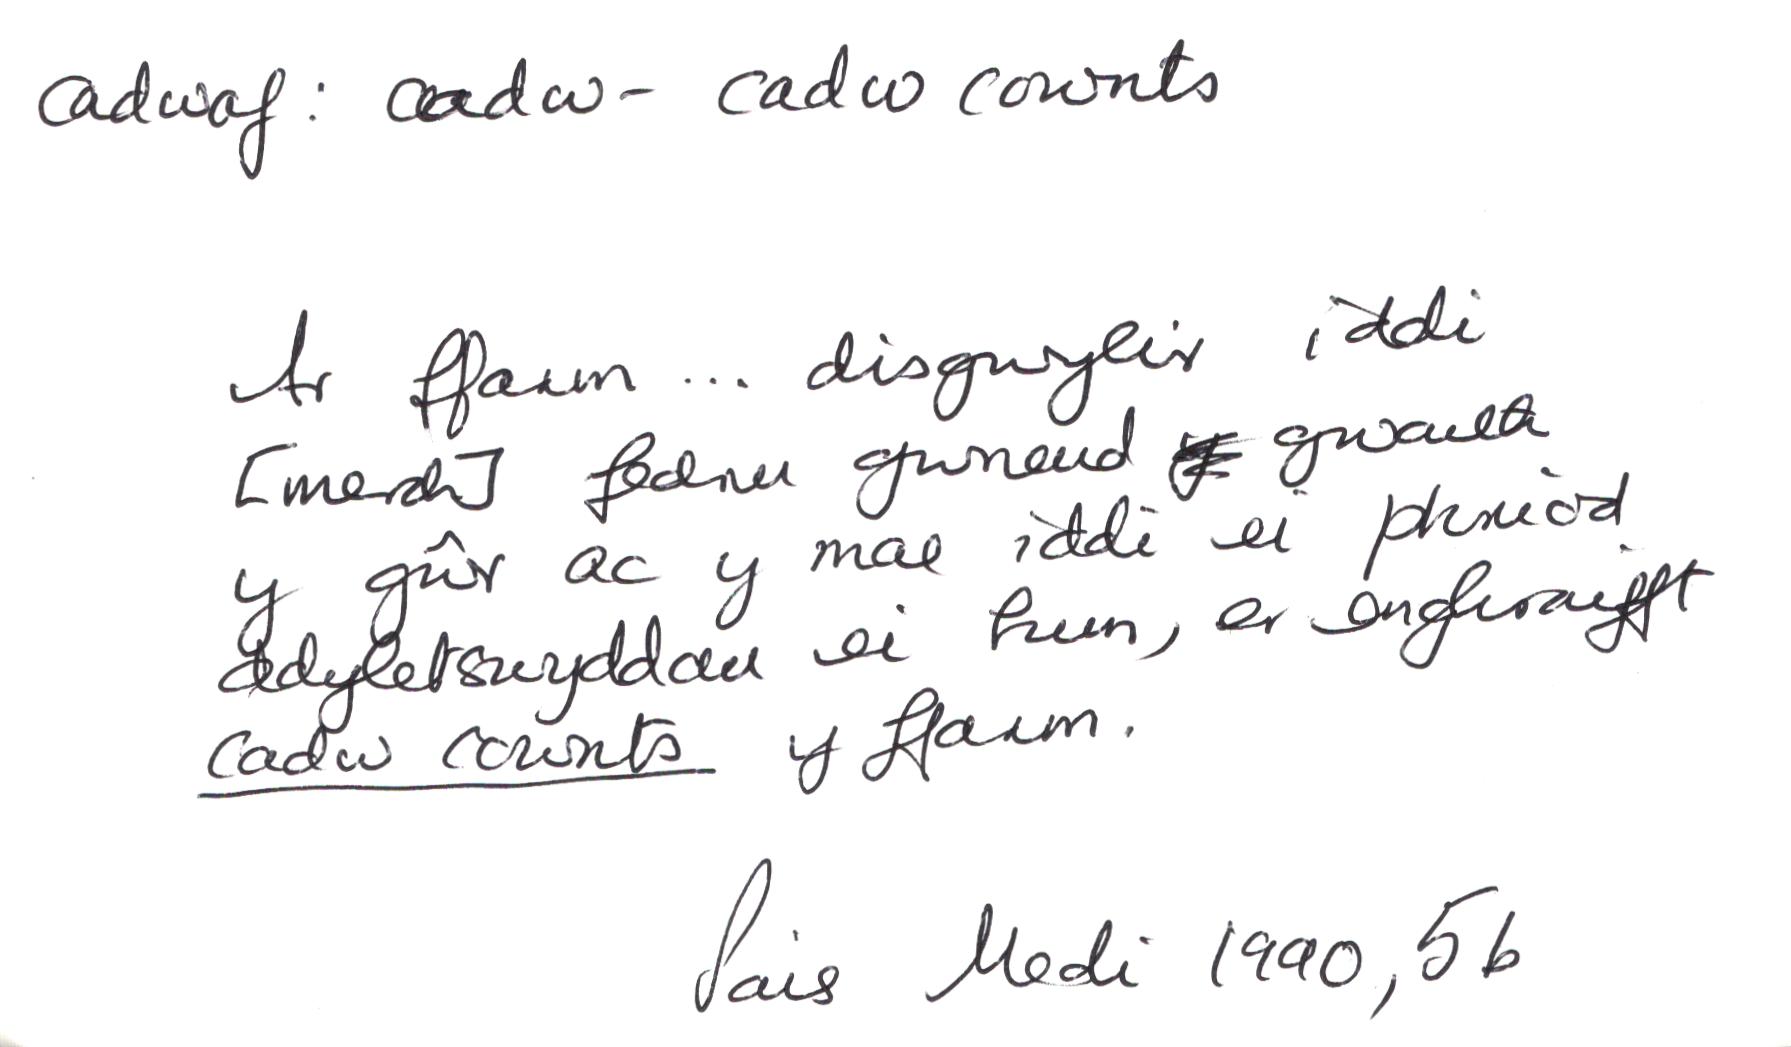 cadwaf: cadw - cadw cownts
Ar ffarm ... disgwylir iddi
[merch] fedru gwneud gwaith
y gŵr ac y mae iddi ei phriod
ddyletswyddau ei hun, er enghraifft
cadw cownts y ffarm.
Pais Medi 1990, 5b